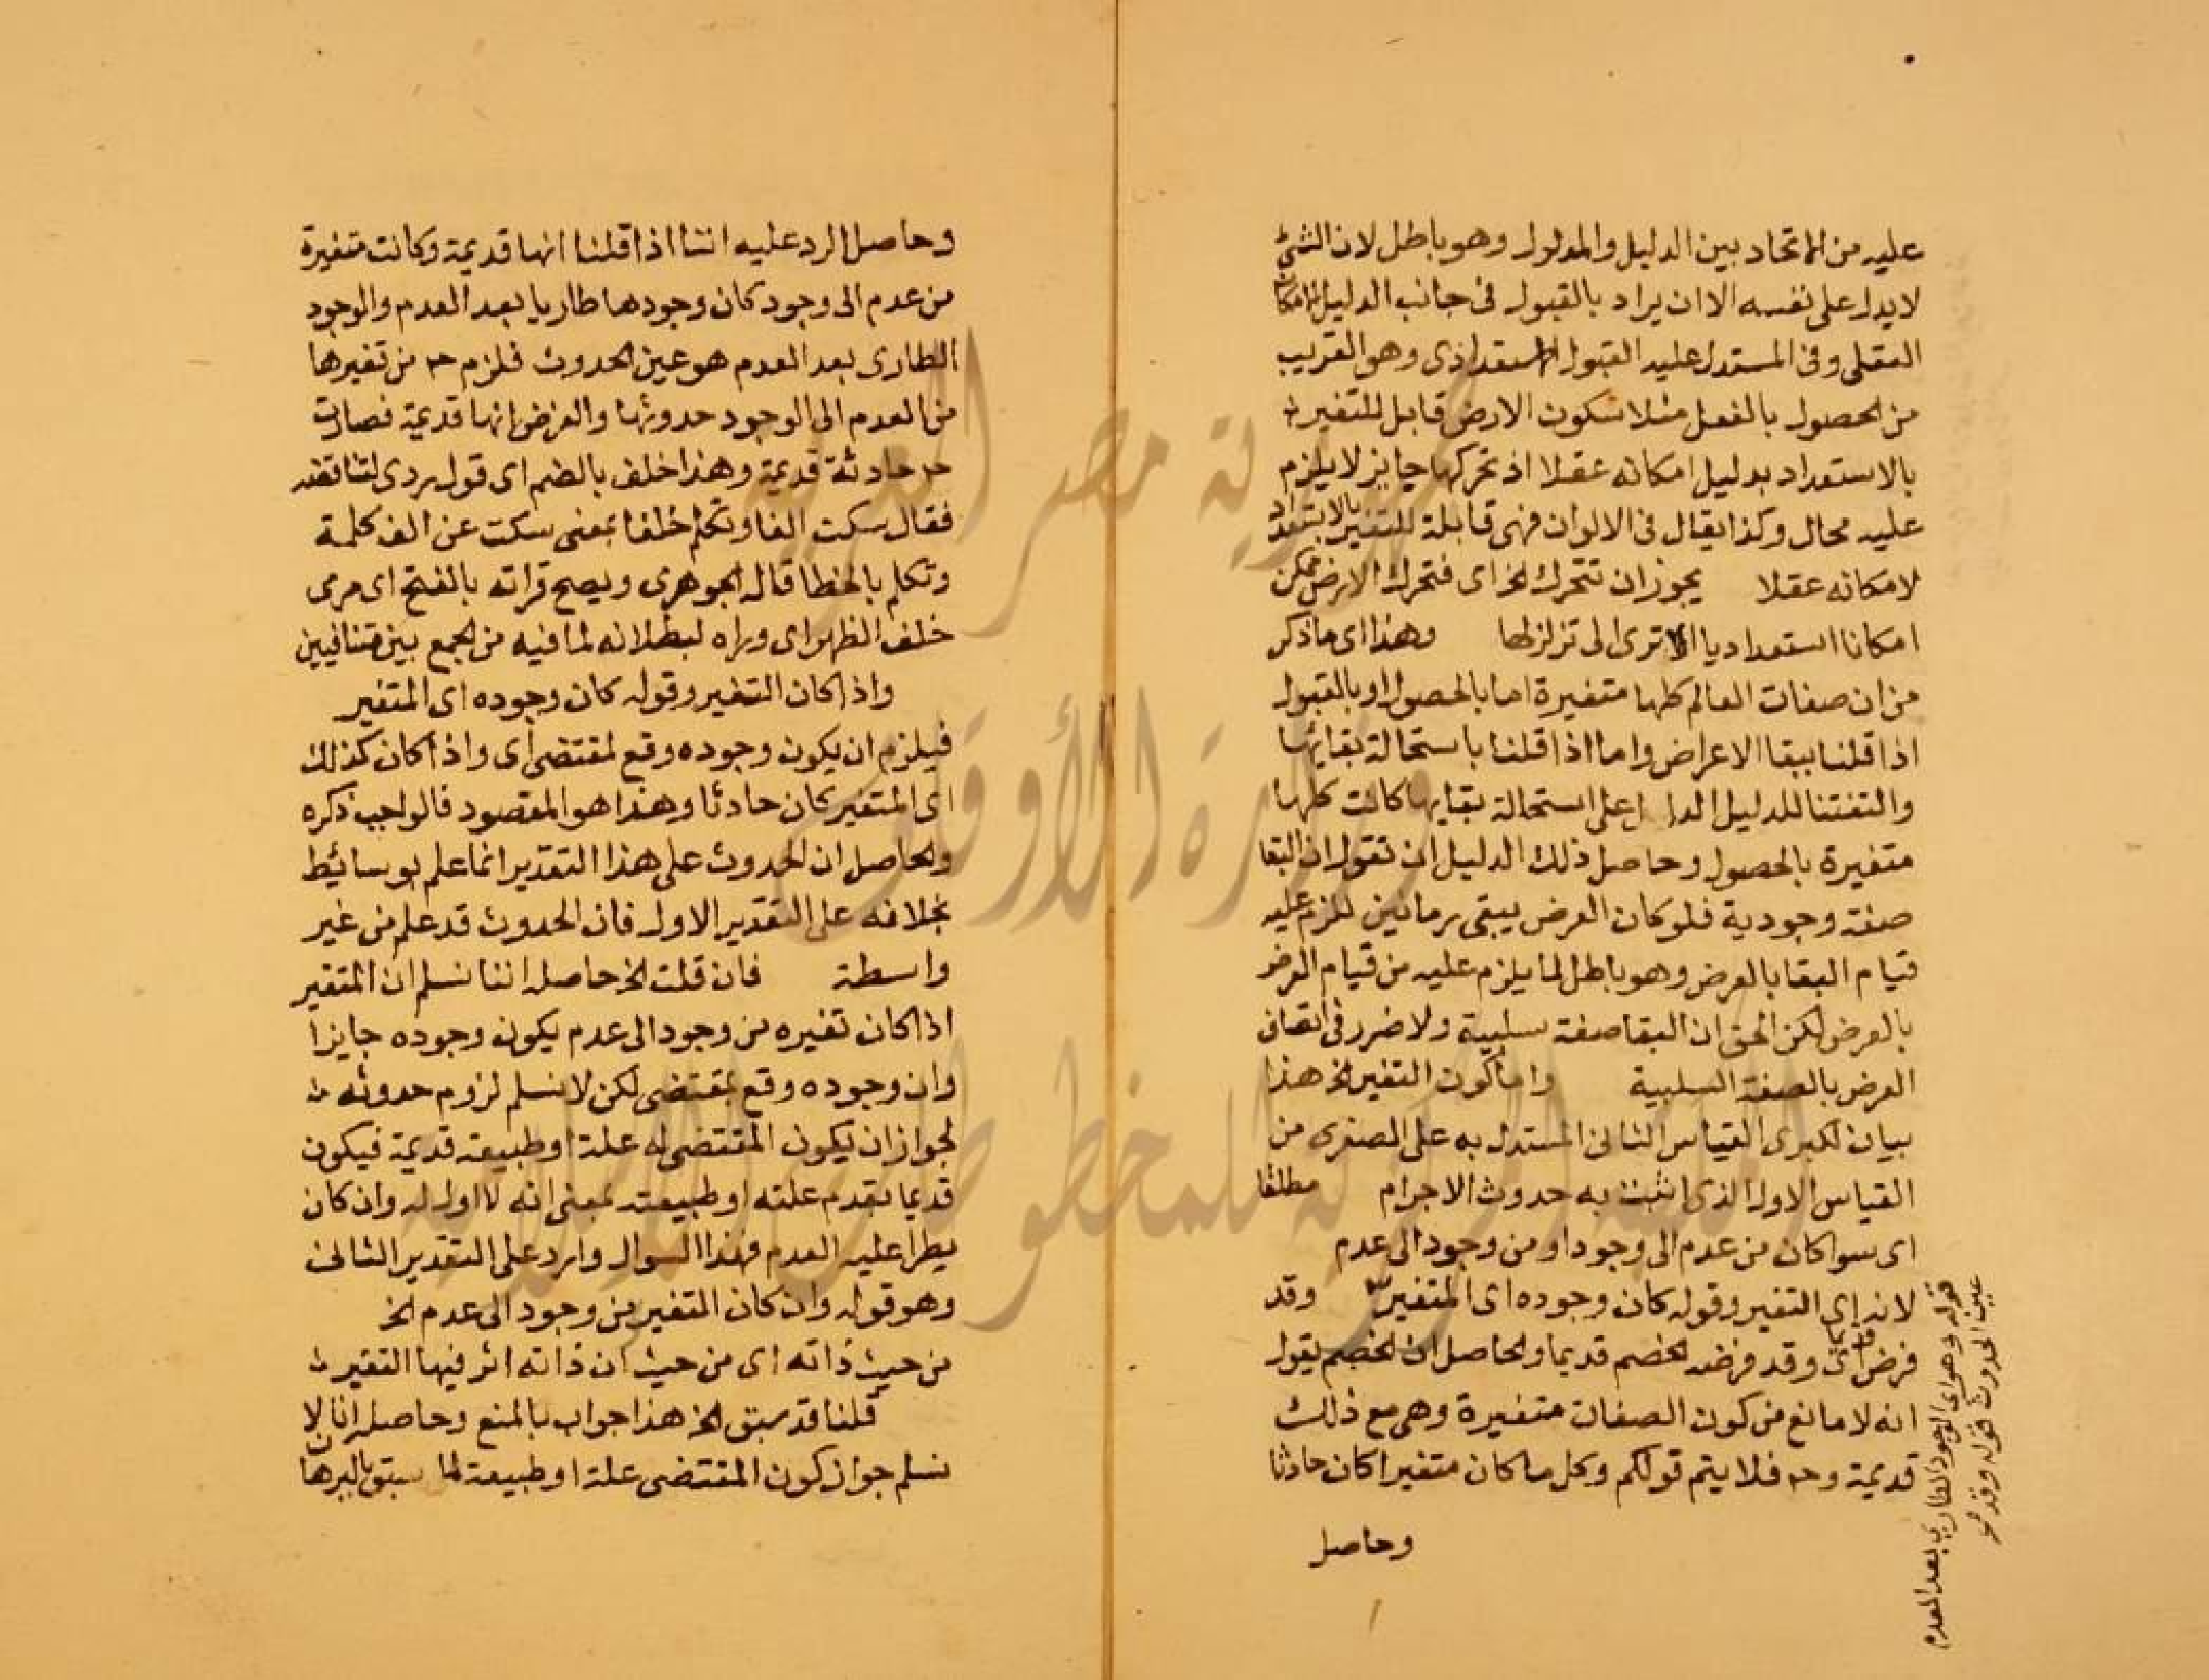 عليه من الاتحاد بين الدليل والمدلول وهو باطل لان الشئ
لا يدل على نفسه الا ان يراد بالقبول فى جانب الدليل الامكان
العقلى وفى المستدل عليه القبول الاستعدادى وهو القريب
من الحصول بالفعل مثلا سكون الارض قابل للتغير
بالاستعداد بدليل امكانه عقلا اذ تحركها جايز لا يلزم
عليه محال وكذا يقال فى الالوان فهى قابلة للتغير بالاستعداد
لامكانه عقلا يجوز ان تتحرك الخ اى فتحرك الارض ممكن
امكانا استعداديا الا ترى الى تزلزلها وهذا اى ما ذكر
من ان صفات العالم كلها متغيرة اما بالحصول او بالقبول
اذا قلنا ببقا الاعراض واما اذا قلنا باستحالة بقايها
والتفتنا للدليل الدال على استحالة بقايها كانت كلها
متغيرة بالحصول وحاصل ذلك الدليل ان تقول ان البقا
صفة وجودية فلو كان العرض يبقى زمانين للزم عليه
قيام البقا بالعرض وهو باطل لما يلزم عليه من قيام العرض
بالعرض لكن الحق ان البقا صفة سلبية ولا ضرر فى اتصاف
العرض بالصفة السلبية واما كون التغير الخ هذا
بيان لكبرى القياس الثانى المستدل به على الصغرى من
القياس الاول الذى اثبت به حدوث الاجرام مطلقا
اى سوا كان من عدم الى وجود او من وجود الى عدم
لانه اى التغير وقوله كان وجوده اى المتغير وقد
فرض قديما اى وقد فرضه الخصم قديما والحاصل ان الخصم يقول
انه لا مانع من كون الصفات متغيرة وهى مع ذلك
قديمة وح فلا يتم قولكم وكل ما كان متغيرا كان حادثا
وحاصل
قوله وهو اى الوجود الطارى بعد العدم
عين الحدوث قوله وقد
وحاصل الرد عليه اننا اذا قلنا انها قديمة وكانت متغيرة
من عدم الى وجود كان وجودها طاريا بعد العدم والوجود
الطارى بعد العدم هو عين الحدوث فلزم ح من تغيرها
من العدم الى الوجود حدوثها والغرض انها قديمة فصارت
ح حادثة قديمة وهذا خلف بالضم اى قول ردى لتناقضه
فقال سكت الفا وتكلم خلفا بمعنى سكت عن الف كلمة
وتكلم بالخطا قاله الجوهرى ويصح قراته بالفتح اى مرمى
خلف الظهر اى وراه لبطلانه لما فيه من الجمع بين متنافيين
واذا كان التغير وقوله كان وجوده اى المتغير
فيلزم ان يكون وجوده وقع لمقتضى اى واذا كان كذلك
اى المتغير كان حادثا وهذا هو المقصود فالواجب ذكره
والحاصل ان الحدوث على هذا التقدير انما علم بوسائط
بخلافه على التقدير الاول فان الحدوث قد علم من غير
واسطة فان قلت الخ حاصله اننا نسلم ان المتغير
اذا كان تغيره من وجود الى عدم يكون وجوده جايزا
وان وجوده وقع لمقتضى لكن لا نسلم لزوم حدوثه
لجواز ان يكون المقتضى له علة او طبيعة قديمة فيكون
قديما بقدم علته او طبيعته بمعنى انه لا اول له وان كان
يطرا عليه العدم فهذا السوال وارد على التقدير الثانى
وهو قوله وان كان المتغير من وجود الى عدم الخ
من حيث ذاته اى من حيث ان ذاته اثر فيها التغير
قلنا قد سبق الخ هذا جواب بالمنع وحاصله انا لا
نسلم جواز كون المقتضى علة او طبيعة لما سبق بالبرهان
جمهورية مصر العربية
وزارة الأوقاف
المكتبة المركزية للمخطوطات الإسلامية